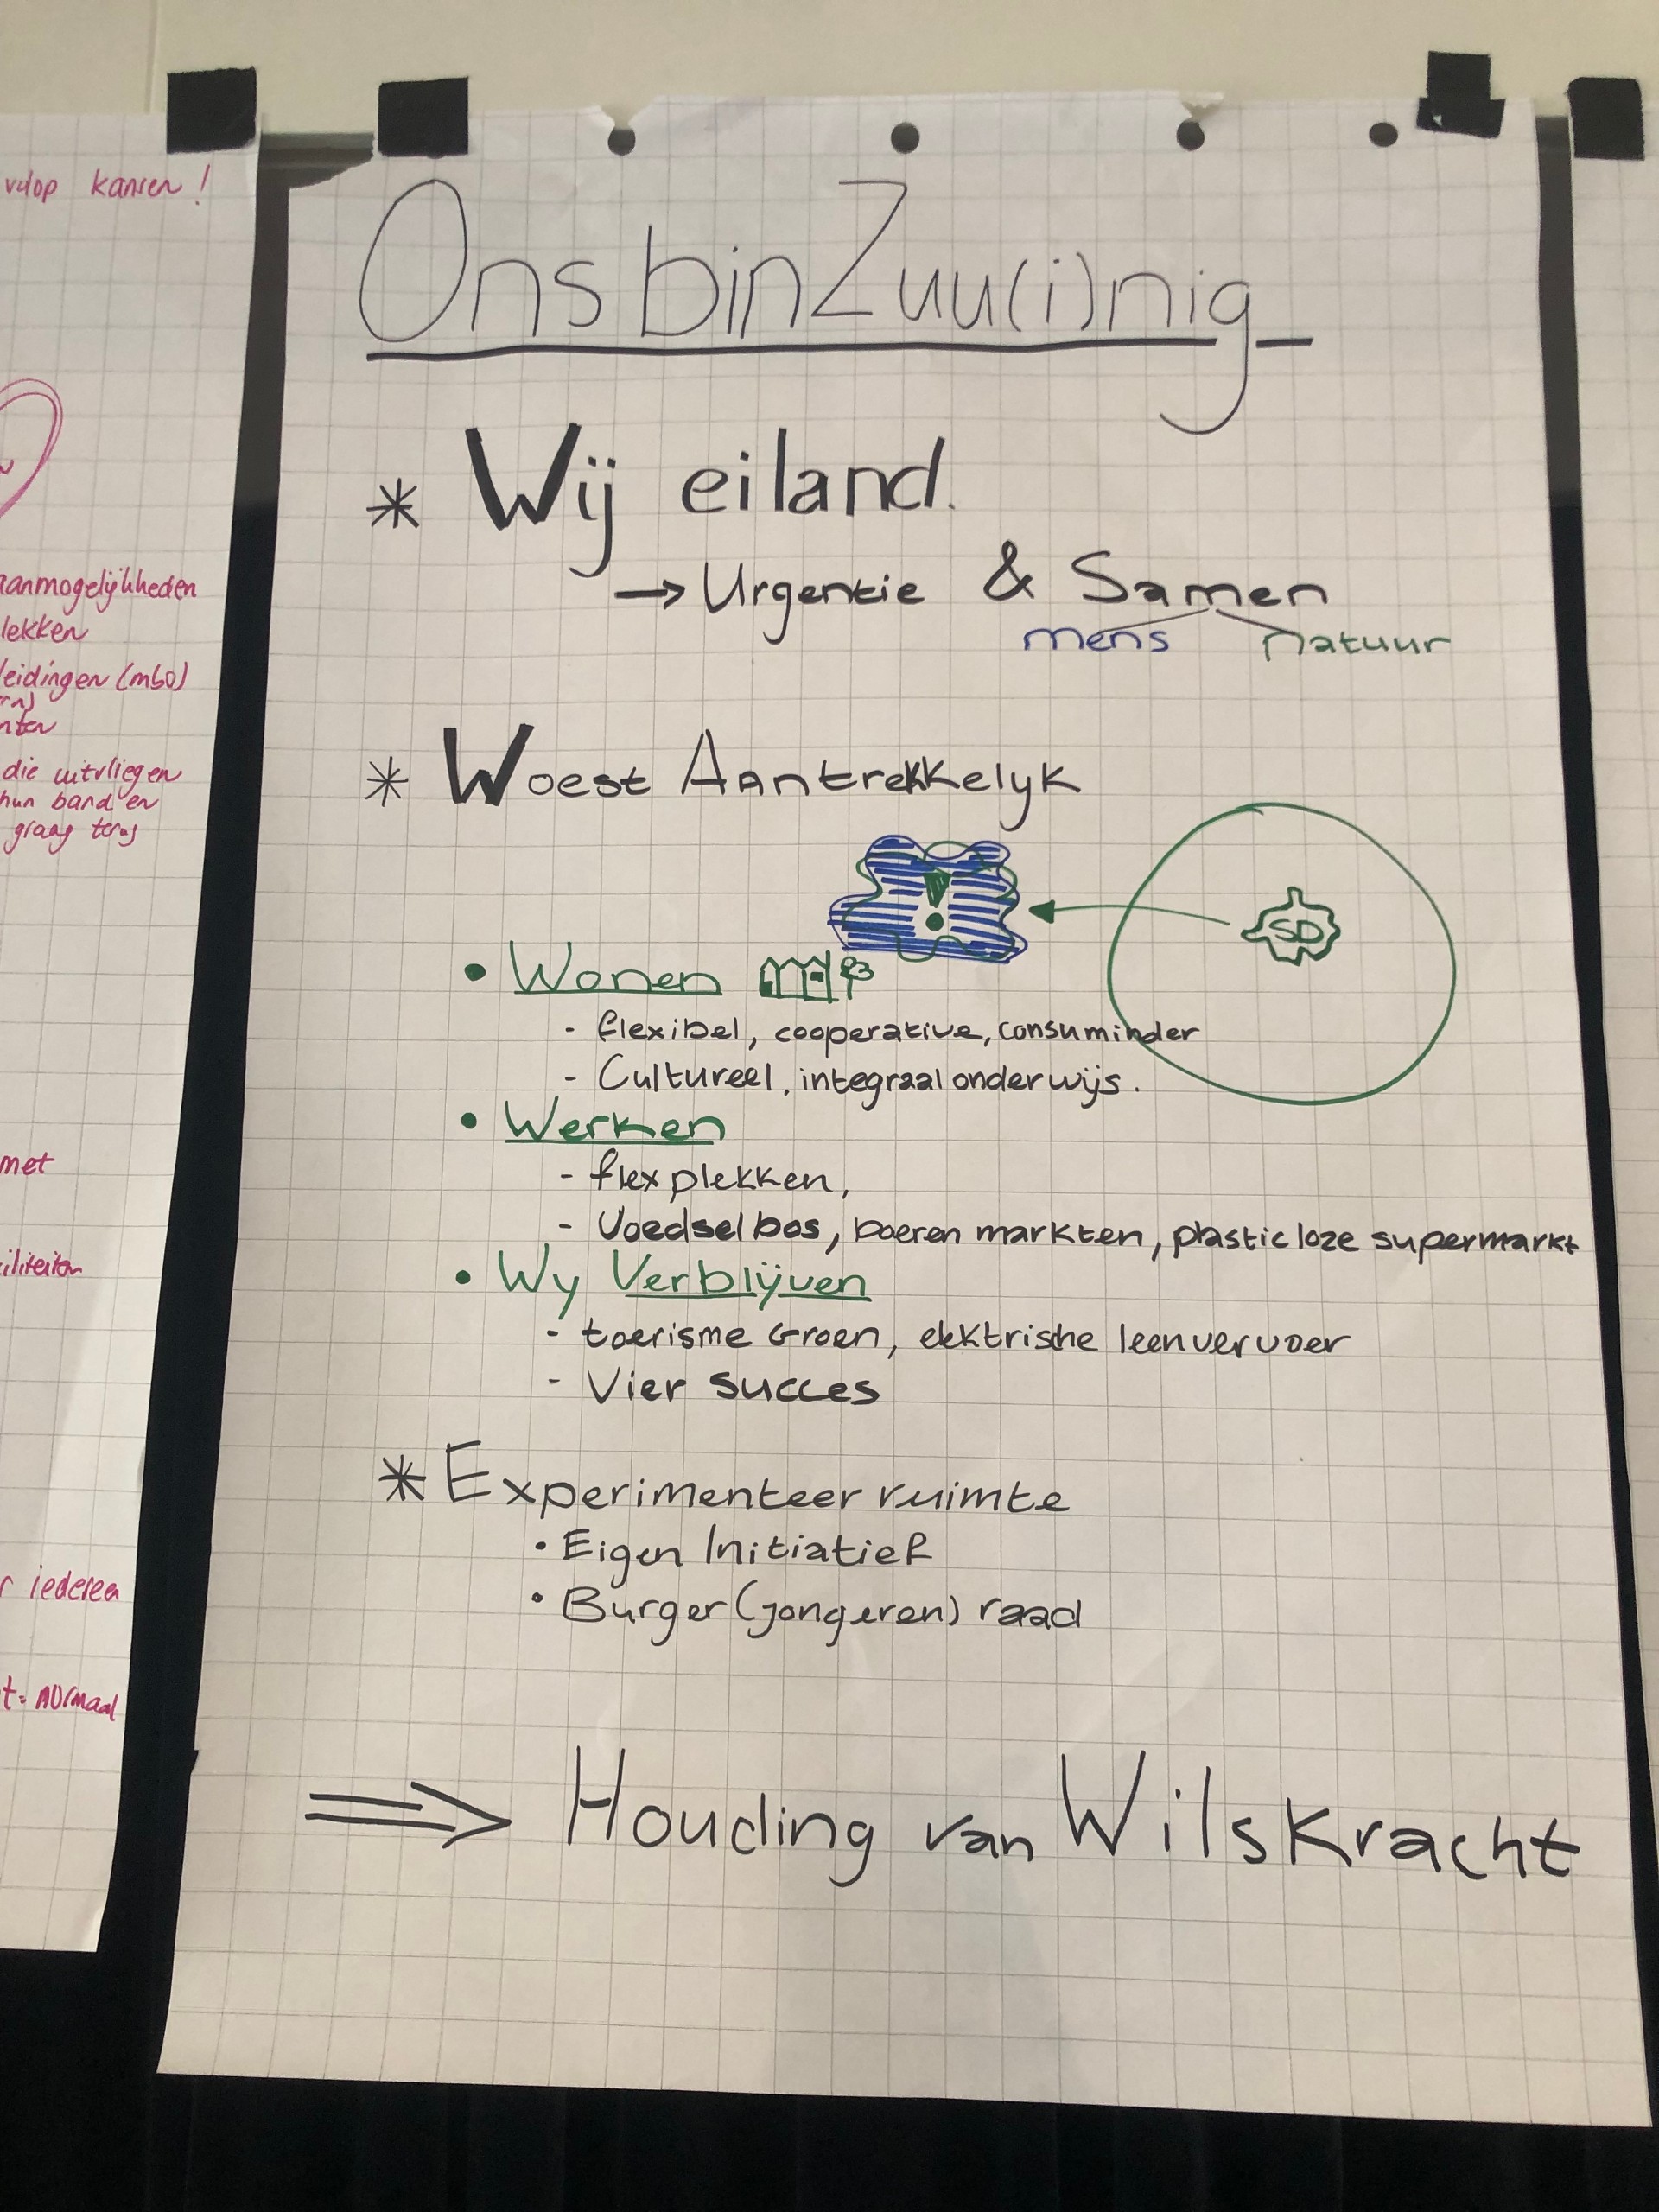 vdop kansen!
aanmogelijkheden
lekken
leidingen (mbo)
nten
die uitvliegen
hun band en
graag terug
met
iliteiten
r iedereen
t = normaal
Ons bin Zuu(i)nig
* Wij eiland.
→ Urgentie & Samen
mens natuur
* Woest Aantrekkelyk
!
SD
• Wonen
- flexibel, cooperative, consuminder
- Cultureel, integraal onderwijs.
• Werken
- flexplekken,
- Voedselbos, boeren markten, plasticloze supermarkt
• Wy Verblijven
- toerisme Groen, elektrische leenvervoer
- Vier succes
* Experimenteer ruimte
• Eigen Initiatief
• Burger (jongeren) raad
⇒ Houding van Wilskracht